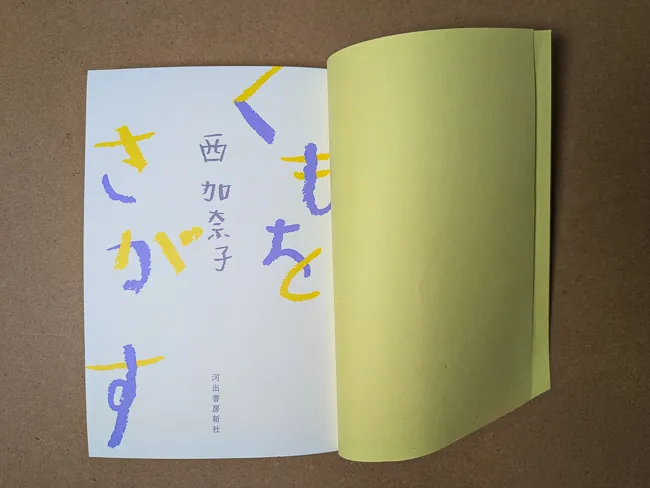 くもを
さがす
西 加奈子
河出書房新社